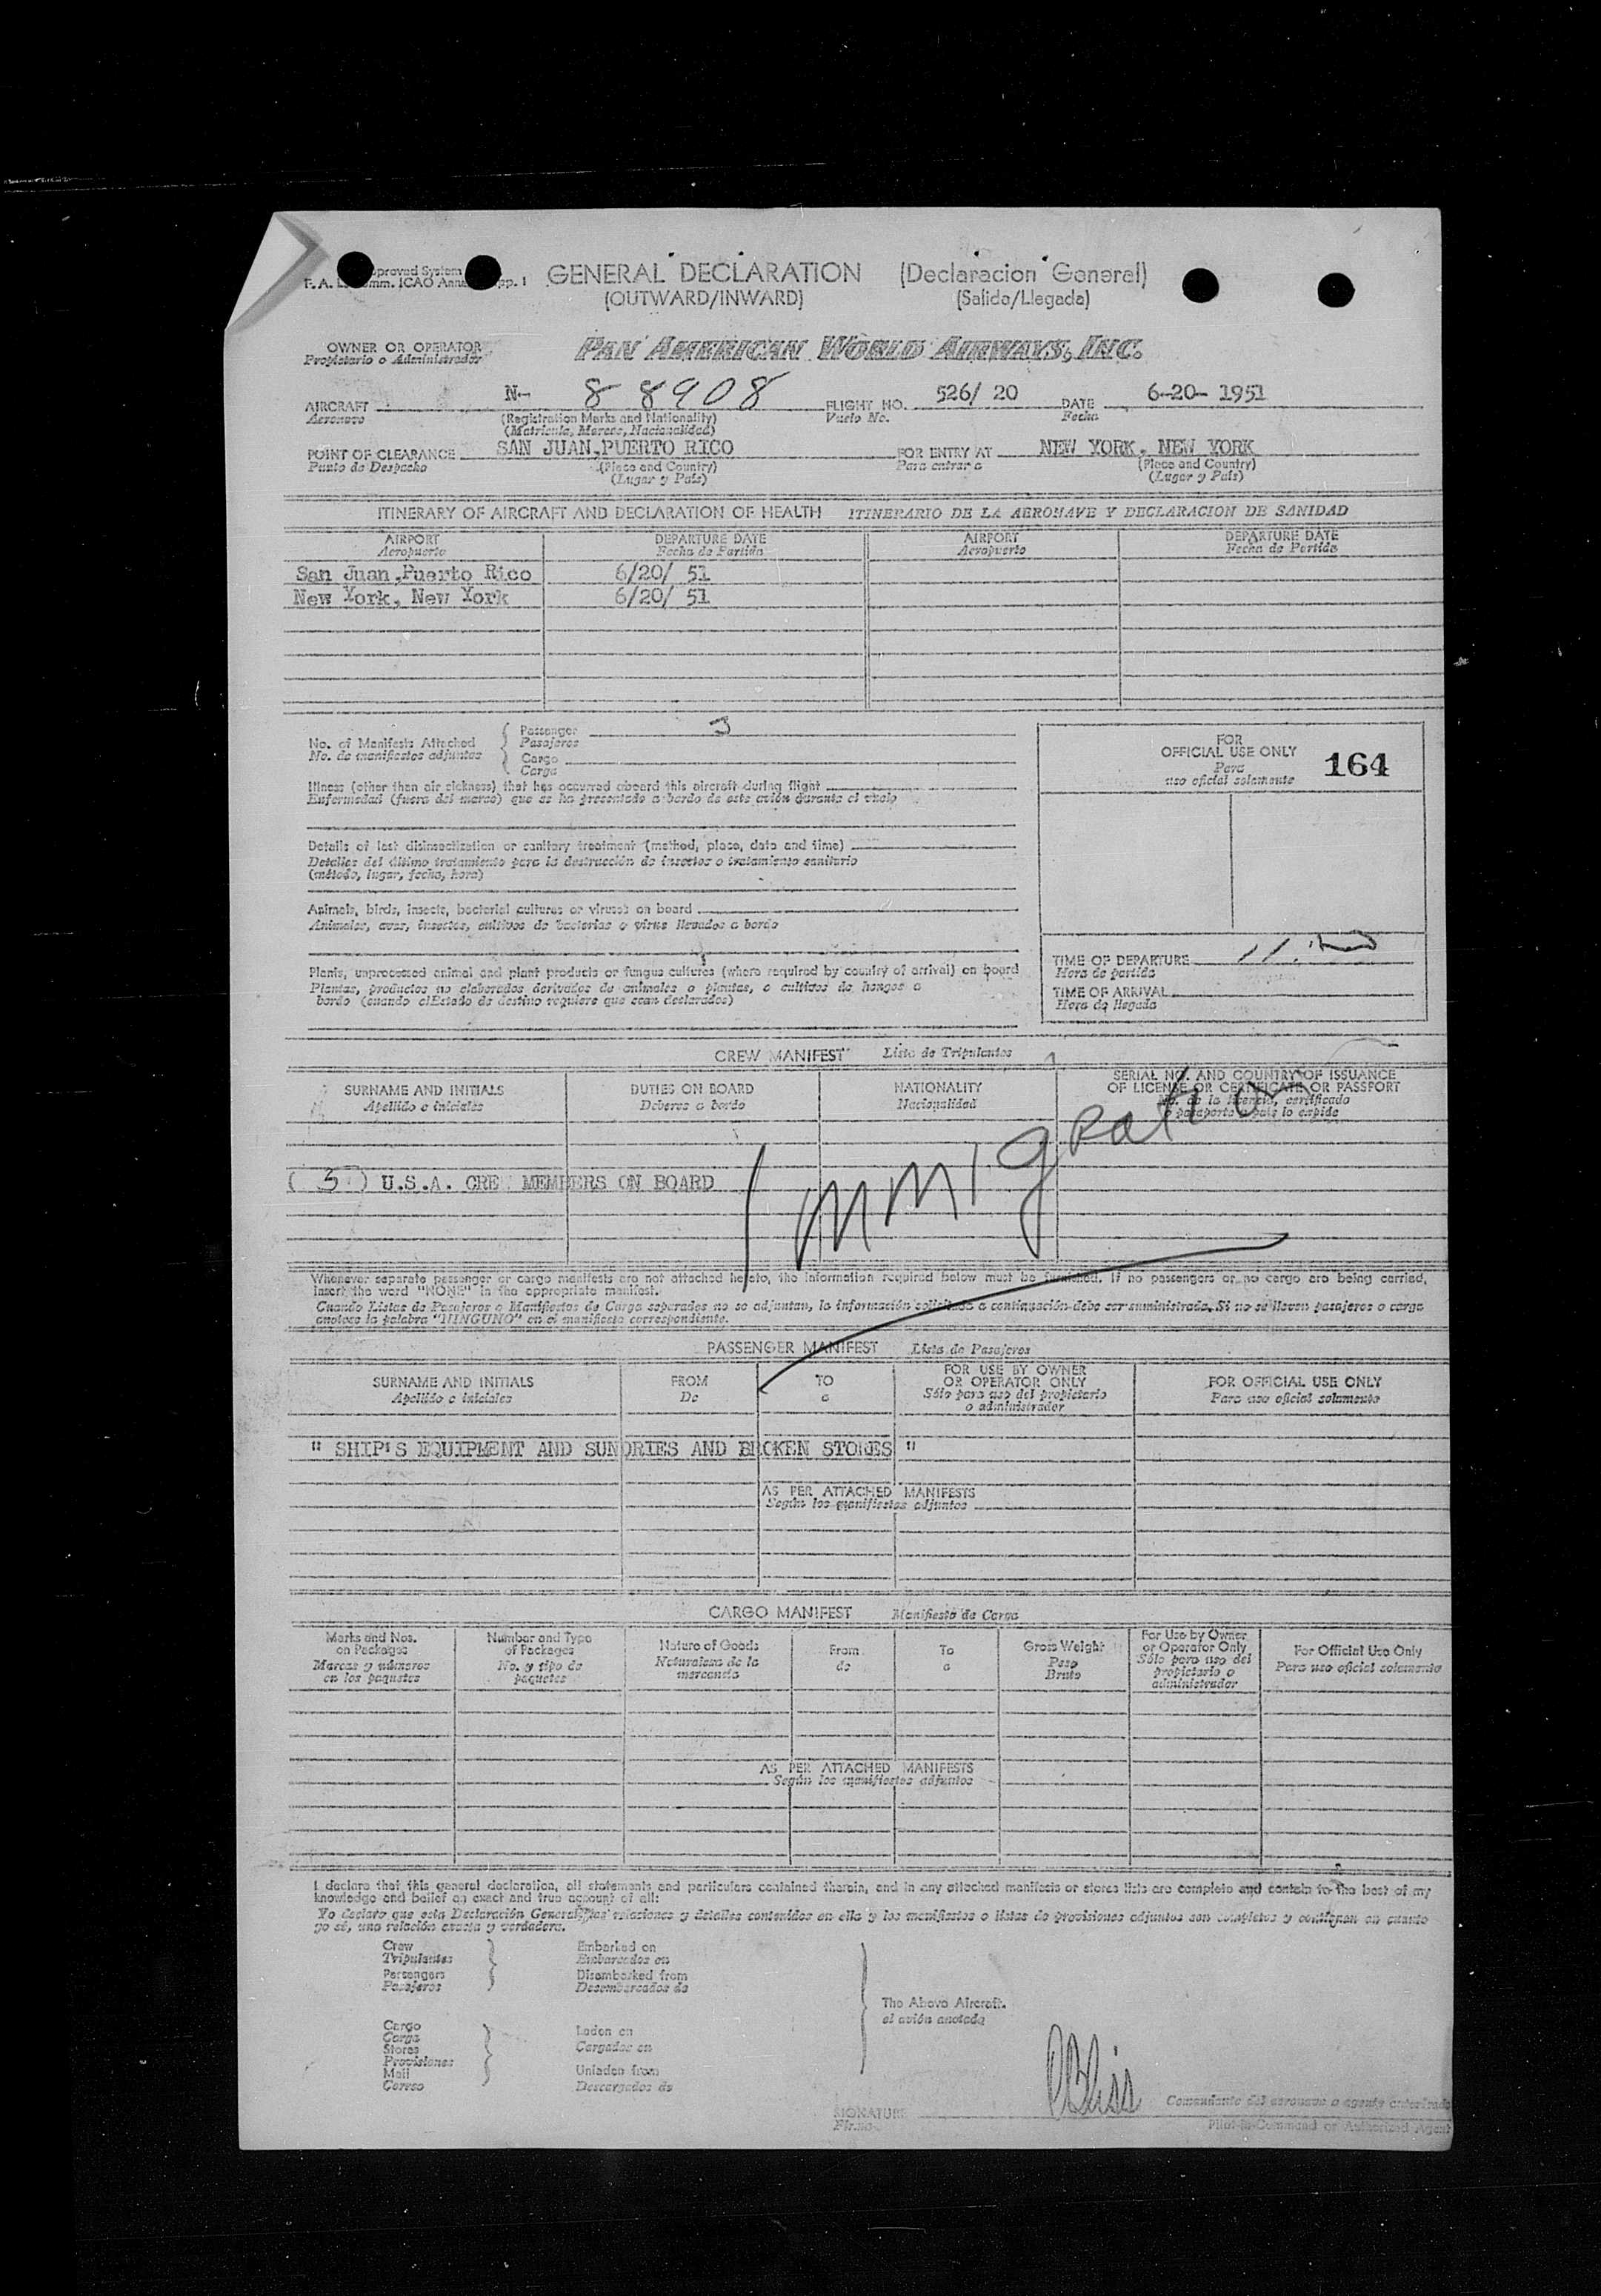 GENERAL DECLARATION (Declaracion General)
(OUTWARD/INWARD) (Salida/Llegada)
OWNER OR OPERATOR PAN AMERICAN WORLD AIRWAYS, INC.
Propietario o Administrador
AIRCRAFT N- 88908 FLIGHT NO. 526/ 20 DATE 6-20- 1951
Aeronave (Registration Marks and Nationality) Vuelo No. Fecha
(Matricula, Marcas, Nacionalidad)
POINT OF CLEARANCE SAN JUAN, PUERTO RICO FOR ENTRY AT NEW YORK, NEW YORK
Punto de Despacho (Place and Country) Para entrar a (Place and Country)
(Lugar y País) (Lugar y País)
ITINERARY OF AIRCRAFT AND DECLARATION OF HEALTH ITINERARIO DE LA AERONAVE Y DECLARACION DE SANIDAD
AIRPORT DEPARTURE DATE AIRPORT DEPARTURE DATE
Aeropuerto Fecha de Partida Aeropuerto Fecha de Partida
San Juan, Puerto Rico 6/20/ 51
New York, New York 6/20/ 51
No. of Manifests Attached
No. de manifiestos adjuntos
Passenger 3
Pasajeros
Cargo
Carga
Illness (other than air sickness) that has occurred aboard this aircraft during flight
Enfermedad (fuera del mareo) que se ha presentado a bordo de este avión durante el vuelo
Details of last disinsectization or sanitary treatment (method, place, date and time)
Detalles del último tratamiento para la destrucción de insectos o tratamiento sanitario
(método, lugar, fecha, hora)
Animals, birds, insects, bacterial cultures or viruses on board
Animales, aves, insectos, cultivos de bacterias o virus llevados a bordo
Plants, unprocessed animal and plant products or fungus cultures (where required by country of arrival) on board
Plantas, productos no elaborados derivados de animales o plantas, o cultivos de hongos a
bordo (cuando el Estado de destino requiere que sean declarados)
FOR
OFFICIAL USE ONLY 164
Para
uso oficial solamente
TIME OF DEPARTURE
Hora de partida
TIME OF ARRIVAL
Hora de llegada
CREW MANIFEST Lista de Tripulantes
SURNAME AND INITIALS DUTIES ON BOARD NATIONALITY SERIAL NO. AND COUNTRY OF ISSUANCE
OF LICENSE OR CERTIFICATE OR PASSPORT
Apellido e iniciales Deberes a bordo Nacionalidad No. de la licencia, certificado
o pasaporte y país lo expide
Immigration
( 3 ) U.S.A. CREW MEMBERS ON BOARD
Whenever separate passenger or cargo manifests are not attached hereto, the information required below must be furnished. If no passengers or no cargo are being carried,
insert the word "NONE" in the appropriate manifest.
Cuando Listas de Pasajeros o Manifiestos de Carga separados no se adjuntan, la información solicitada a continuación debe ser suministrada. Si no se llevan pasajeros o carga
anótese la palabra "NINGUNO" en el manifiesto correspondiente.
PASSENGER MANIFEST Lista de Pasajeros
SURNAME AND INITIALS FROM TO FOR USE BY OWNER FOR OFFICIAL USE ONLY
OR OPERATOR ONLY
Apellido e iniciales De a Sólo para uso del propietario Para uso oficial solamente
o administrador
" SHIP'S EQUIPMENT AND SUNDRIES AND BROKEN STORES "
AS PER ATTACHED MANIFESTS
Según los manifiestos adjuntos
CARGO MANIFEST Manifiesto de Carga
Marks and Nos. on Packages Number and Type of Packages Nature of Goods From To Gross Weight For Use by Owner or Operator Only For Official Use Only
Marcas y números en los paquetes No. y tipo de paquetes Naturaleza de la mercancía de a Peso Bruto Sólo para uso del propietario o administrador Para uso oficial solamente
AS PER ATTACHED MANIFESTS
Según los manifiestos adjuntos
I declare that this general declaration, all statements and particulars contained therein, and in any attached manifests or stores lists are complete and contain to the best of my
knowledge and belief an exact and true account of all:
Yo declaro que esta Declaración General, las relaciones y detalles contenidos en ella y los manifiestos o listas de provisiones adjuntos son completos y contienen en cuanto
yo sé, una relación exacta y verdadera.
Crew Embarked on
Tripulantes Embarcados en
Passengers Disembarked from
Pasajeros Desembarcados de
The Above Aircraft.
el avión anotado
Cargo
Carga Laden on
Stores Cargados en
Provisiones
Mail Unladen from
Correo Descargados de
SIGNATURE Comandante del aeronave o agente autorizado
Firma Pilot-in-Command or Authorized Agent